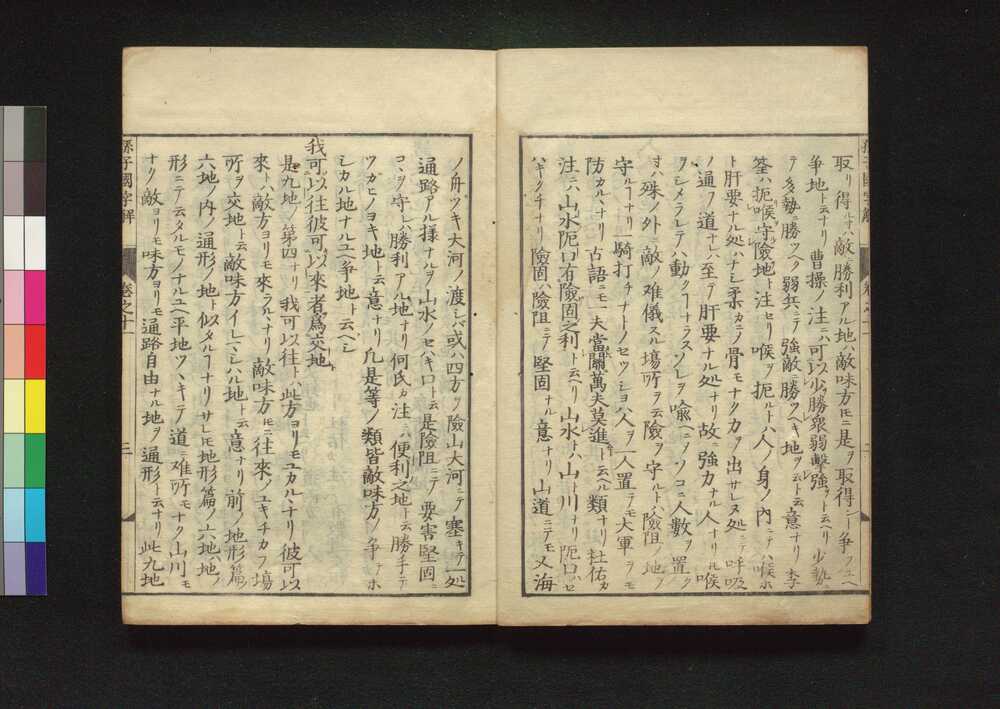 取リ得レハ敵ノ勝利アル地ハ敵味方𪜈ニ是ヲ取得ント争フユヘ
争地ト云ナリ曹操ノ注ニハ可以少勝衆弱擊強ト云ヘリ少勢
ニテ多勢ニ勝ツヘク弱兵ニテ強敵ニ勝ツヘキ地ヲ云ト云意ナリ李
筌ハ扼喉守險地ト注セリ喉ヲ扼ルトハ人ノ身ノ内ニテハ喉ホ
ト肝要ナル処ハナシ柔カニノ骨モナク力ヲ出サレヌ処ニテ呼吸
ノ通フ道ナレハ至テ肝要ナル処ナリ故ニ強力ナル人ナリ𪜈喉
ヲシメラレテハ動クヿナラスソレヲ喩ヘニ乄ソコニ人数ヲ置ケ
ハ殊ノ外ニ敵ノ难儀スル場所ヲ云險ヲ守ルトハ險阻ノ地ヲ
守ルヿナリ一騎打チナトノセツシヨハ人ヲ一人置テモ大軍ヲモ
防カルヽナリ古語ニモ一夫當關萬夫莫進ト云ヘル類ナリ杜佑カ
注ニハ山水阨口有險固之利ト云ヘリ山水ハ山ト川ナリ阨口ハセ
ハキクチナリ險固ハ險阻ニテ堅固ナル意ナリ山道ニテモ又海
ノ舟ツキ大河ノ渡シバ或ハ四方ヲ險山大河ニテ塞キテ一処
通路アル様ナルヲ山水ノセハキ口ト云是險阻ニテ要害堅固ニ
コヽヲ守レハ勝利アル地ナリ何氏カ注ニハ便利之地ト云勝手テ
ツカヒノヨキ地ト云意ナリ凡是等ノ類皆敵味方ノ争フホ
シカル地ナルユヘ争地ト云ヘシ
我可以往彼可以來者爲交地
是九地ノ第四ナリ我可以往トハ此方ヨリモユカルヽナリ彼可以
來トハ敵方ヨリモ來ラルヽナリ敵味方𪜈ニ往來ノユキチカフ塲
所ヲ交地ト云敵味方イレマシハル地ト云意ナリ前ノ地形篇
六地ノ内ノ通形ノ地ト似タルヿナリサレ𪜈地形篇ノ六地ハ地ノ
形ニテ云タルモノナルユヘ平地ツヽキテ道ニ难所モナク山川モ
ナク敵ヨリモ味方ヨリモ通路自由ナル地ヲ通形ト云ナリ此九地
孫子國字解
卷之十一
三
孫子國字解